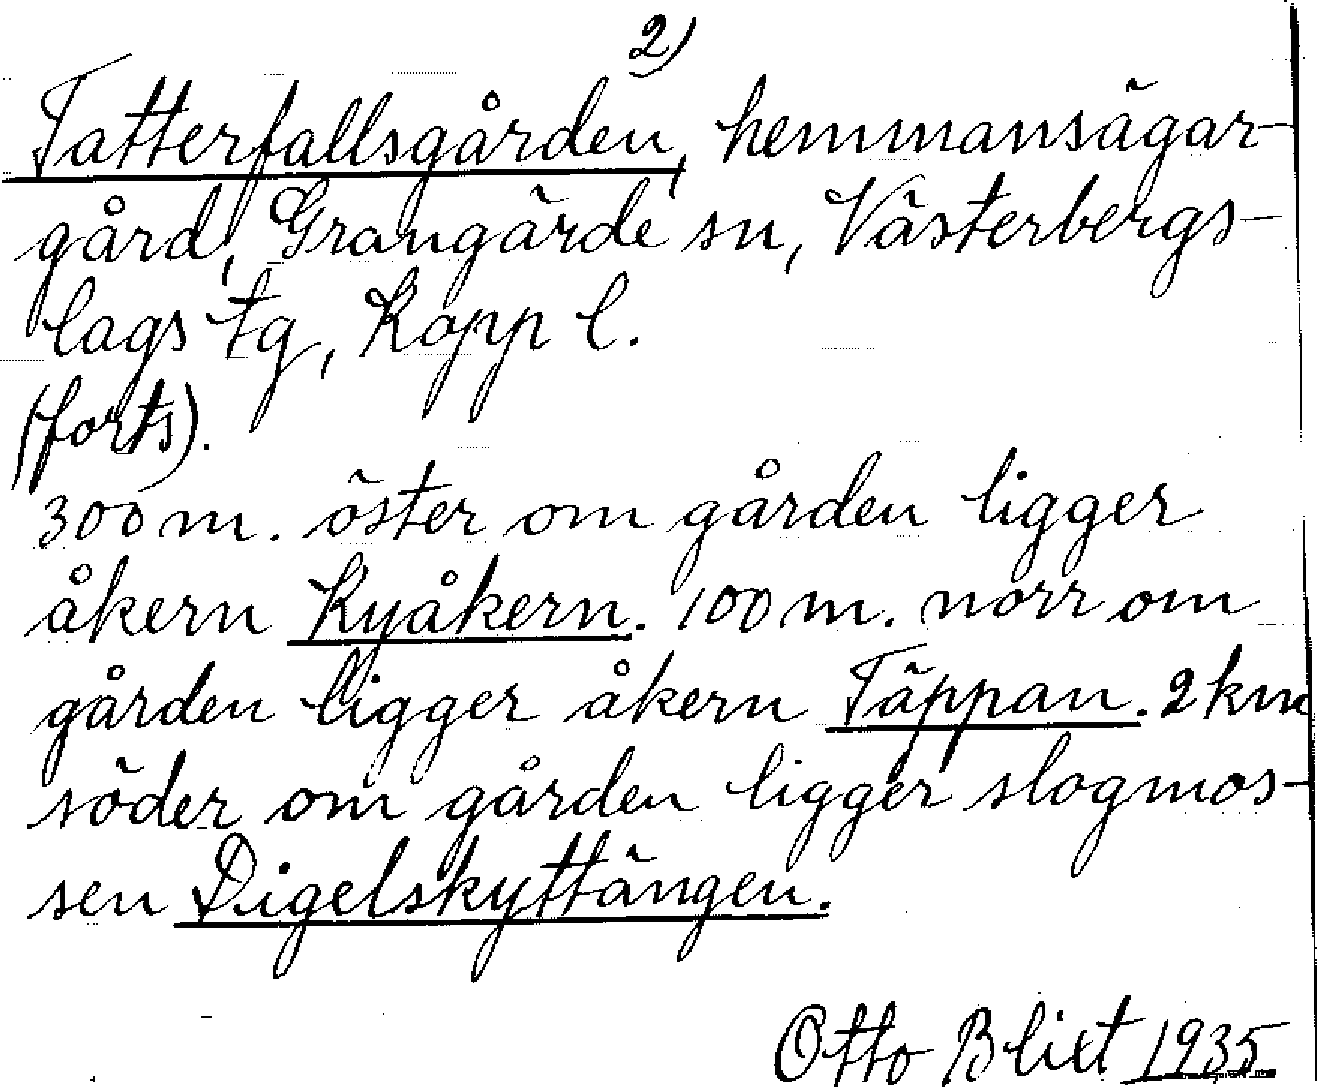 2)
Tatterfallsgården, hemmansägar-
gård, Grangärde sn, Västerbergs-
lags tg, Kopp l.
(forts).
300 m. öster om gården ligger
åkern Kyåkern. 100 m. norr om
gården ligger åkern Täppan. 2 km
söder om gården ligger slogmos-
sen Digelskyttängen.
Otto Blixt 1935